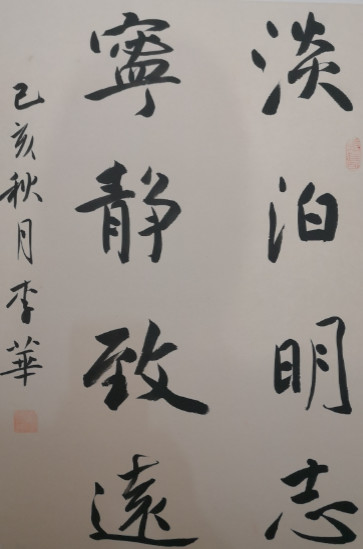 淡泊明志
寧靜致遠
己亥秋月李華